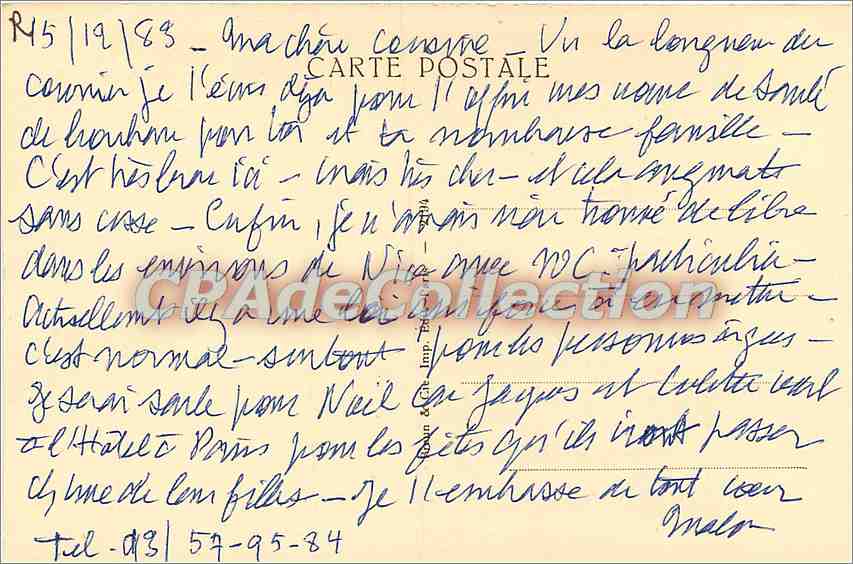 R
15/12/83 - Ma chère cousine - Vu la longueur du
CARTE POSTALE
courrier je t'écris déjà pour t'offrir mes vœux de santé
de bonheur pour toi et ta nombreuse famille -
C'est très beau ici - mais très cher - et cela augmente
sans cesse - Enfin, je n'avais rien trouvé de libre
dans les environs de Nice avec WC - particulier -
CPAdeCollection
Actuellement il y a une loi qui force à en mettre -
c'est normal - surtout pour les personnes âgées -
Je serai seule pour Noël car Jacques et Colette vont
à l'Hôtel à Paris pour les fêtes qu'ils iront passer
chez une de leur filles - Je t'embrasse de tout cœur
Tel - 93/ 57-95-84